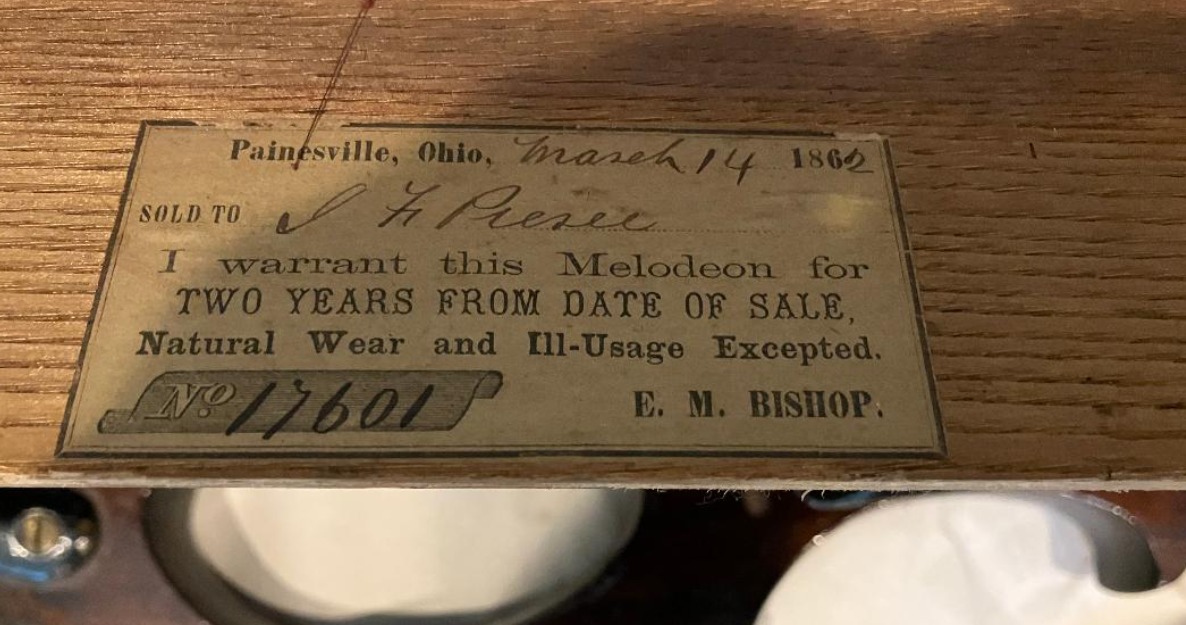 Painesville, Ohio, March 14 1862
SOLD TO J F Presee
I warrant this Melodeon for
TWO YEARS FROM DATE OF SALE,
Natural Wear and Ill-Usage Excepted.
No 17601
E. M. BISHOP.